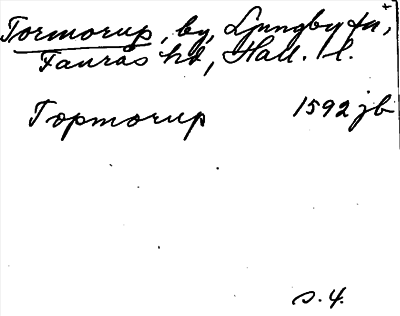 Tormorup, by, Ljungby sn,
Faurås hd, Hall. l.
Topmorup 1592 jb
s. 4.